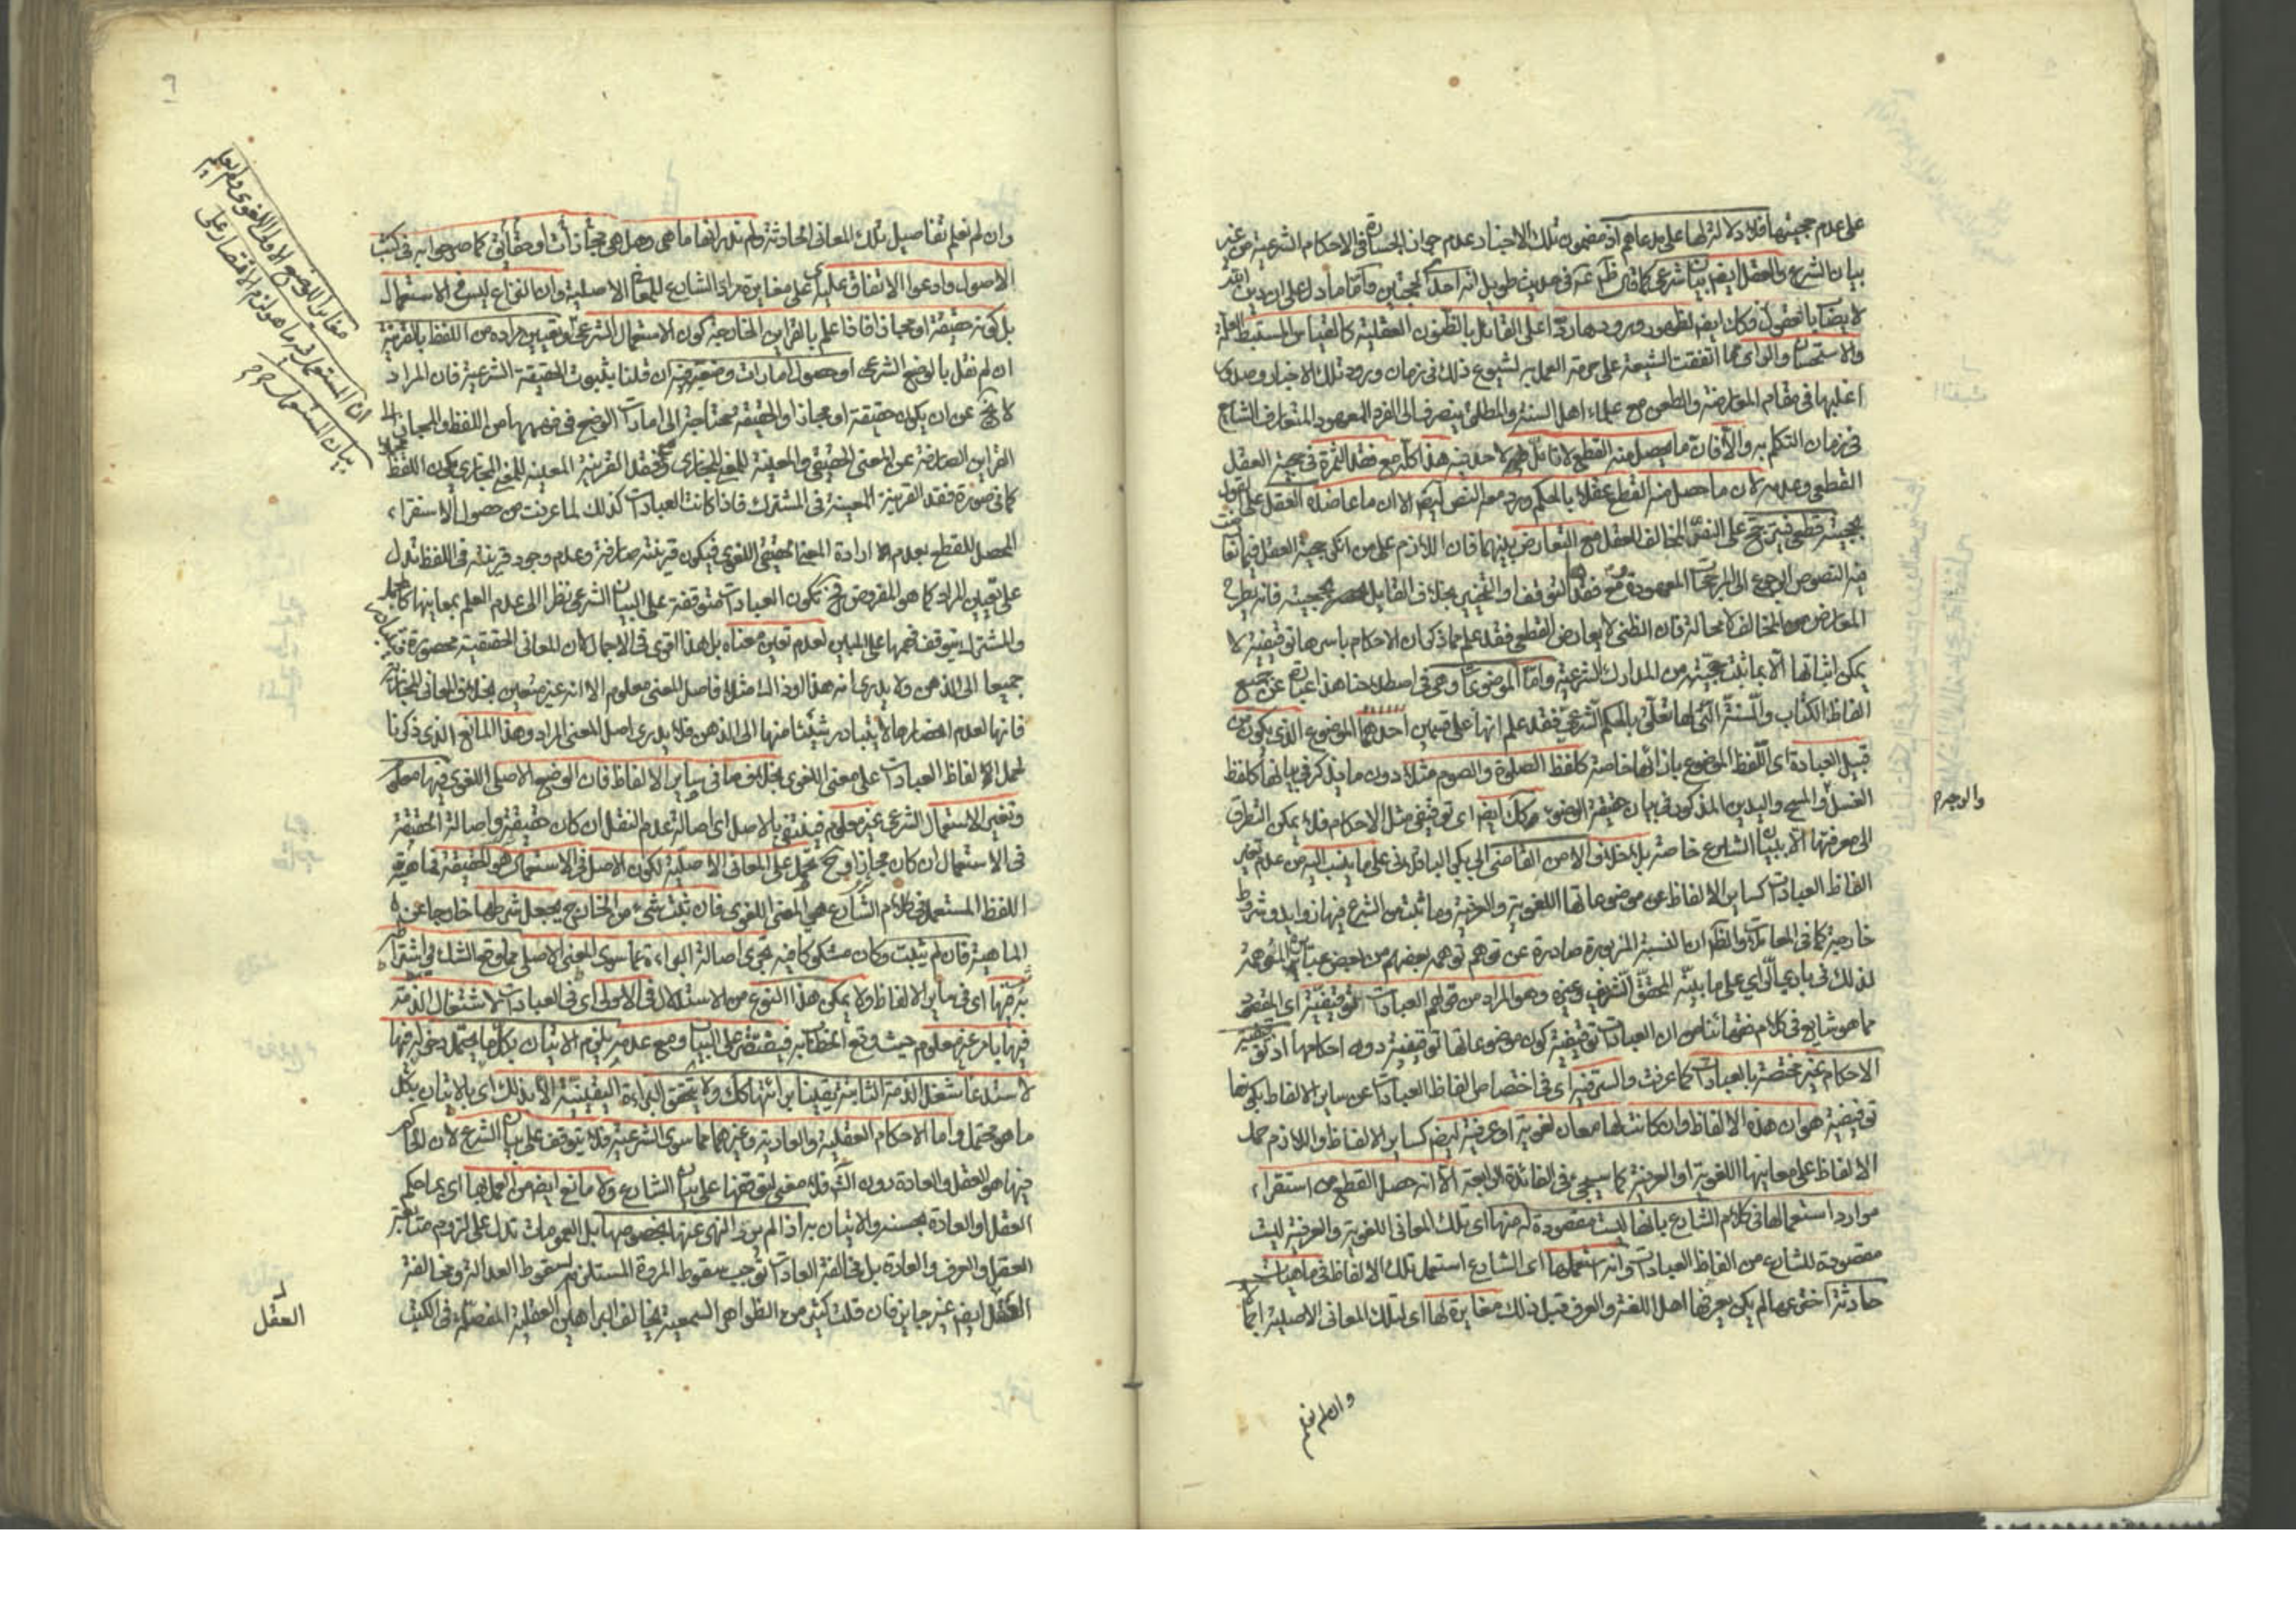 على عدم حجيتها فلا دلالة لها على مدعاهم اذ مضمون تلك الاخبار عدم جواز الجسارة في الاحكام الشرعية من غير
بيان الشرع والعقل ايضم بيان شرعي كما في حديث طويل انه احد الحجتين واما ما دل على ان دين الله
لا يصاب بالعقول وكك ايضم لظهور ورودها ردا على القائل بالظنون العقلية كالقياس المستنبط العلة
والاستحسان والراى مما اتفقت الشيعة على حرمة العمل به لشيوع ذلك في زمان ورود تلك الاخبار وصدور
اغلبها في مقام المعارضة والطعن مع علماء اهل السنة والمطلق ينصرف الى الفرد المعهود المتعارف الشايع
في زمان التكلم به والا فان ما يحصل منه القطع لا تامل لاحد فيه هذا كله مع فقد الثمرة في حجية العقل
القطعي وعدمه لان ما حصل منه القطع عقلا بالحكم ورد معه النص ايضم الا ان ما عاضده العقل على القول
بحجيته قطعي فيرجح على النقل المخالف للعقل مع التعارض بينهما فان اللازم على من انكر حجية العقل فيما تعارضت
فيه النصوص الرجوع الى المرجحات المعهودة ومع فقدها التوقف او التخيير بخلاف القايل بحجيته فانه يطرح
المعارض من المخالف لا محالة فان الظني لا يعارض القطعي فقد علم مما ذكر ان الاحكام باسرها توقيفية لا
يمكن اثباتها الا بما ثبت حجيته من المدارك الشرعية واما الموضوعات وهي في اصطلاحنا هذا عبارة عن جميع
الفاظ الكتاب والسنة التي لها تعلق بالحكم الشرعي فقد علم انها على قسمين احدهما الموضوع الذي يكون من
قبيل العبادة اى اللفظ الموضوع بازائها خاصة كلفظ الصلوة والصوم مثلا دون ما يذكر في بيانها كلفظ
الغسل والمسح واليدين المذكور في بيان حقيقة الوضوء وكك ايضم اى توقيفي مثل الاحكام فلا يمكن التطرق
والوجه م
الى معرفتها الا ببيان الشارع خاصة بلا خلاف الا من القاضي ابي بكر الباقلاني على ما ينسب اليه من عدم تغير
الفاظ العبادات كساير الالفاظ عن موضوعاتها اللغوية والعرفية وما ثبت من الشرع فيها زوايد وشروط
خارجية كما في المعاملات والظم ان النسبة المزبورة صادرة عن توهم توهمه بعضهم من بعض عباراته الموهمة
لذلك في بادى الراى على ما بينه المحقق الشريف وغيره وهو المراد من قولهم العبادات توقيفية اى المقصود
مما هو شايع في كلام فقهائنا من ان العبادات توقيفية كون موضوعاتها توقيفية دون احكامها اذ توقيفية
الاحكام غير مختصة بالعبادات كما عرفت والسر فيه اى في اختصاص الفاظ العبادات عن ساير الالفاظ بكونها
توقيفية هو ان هذه الالفاظ وان كانت لها معان لغوية او عرفية ايضم كساير الالفاظ واللازم حمل
الالفاظ على معانيها اللغوية او العرفية كما سيجيء في الفائدة الرابعة الا انه حصل القطع من استقراء
موارد استعمالها في كلام الشارع بانها ليست مقصودة له منها اى تلك المعاني اللغوية والعرفية ليست
مقصودة للشارع من الفاظ العبادات وانه استعملها اى الشارع استعمل تلك الالفاظ في ماهيات
حادثة اخترعها لم يكن يعرفها اهل اللغة والعرف قبل ذلك مغايرة لها اى لتلك المعاني الاصلية اجمالا
وان لم نعلم
٩
وان لم نعلم تفاصيل تلك المعاني الحادثة ولم ندر انها ما هي وهل هي مجازات او حقائق كما صرحوا به في كتب
الاصول وادعوا الاتفاق عليه اى على مغايرة مراد الشارع للمعانى الاصلية وان النزاع ليس في الاستعمال
بل كونه حقيقة او مجازا فاذا علم بالقراين الخارجية كون الاستعمال الشرعي وتعيين مراده من اللفظ بالقرينة
مغاير للوضع الاول اللغوي ولم نعلم
ان المستعمل فيه ما هو لزم الاقتصار على
بيان المستعمل م م
ان لم نقل بالوضع الشرعي او حصول امارات وضعه ان قلنا بثبوت الحقيقة الشرعية فان المراد
لا يخ عن ان يكون حقيقة او مجازا والحقيقة محتاجة الى امارات الوضع في فهمها من اللفظ والمجاز الى
القراين الصارفة عن المعنى الحقيقي والمعينة للمعنى المجازي ومع فقد القرينة المعينة للمعنى المجازي يكون اللفظ مجملا
كما في صورة فقد القرينة المعينة في المشترك فاذا كانت العبادات كذلك لما عرفت من حصول الاستقراء
المحصل للقطع بعدم ارادة المعنى الحقيقي اللغوي فيكون قرينة صارفة وعدم وجود قرينة في اللفظ تدل
على تعيين المراد كما هو المفروض فح تكون العبادات متوقفة على البيان الشرعي نظرا الى عدم العلم بمعانيها كالمجمل
والمشترك يتوقف فهمها على المبين لعدم تعين معناه بل هذا اقوى في الاجمال لان المعاني الحقيقية محصورة تتبادر
جميعا الى الذهن ولا يدرى انه هذا او ذاك مثلا فاصل المعنى معلوم الا انه غير متعين بخلاف المعاني المجازية
فانها لعدم انحصارها لا يتبادر شيئا منها الى الذهن فلا يدرى اصل المعنى المراد وهذا المانع الذي ذكرنا
لحمل الالفاظ العبادات على معنى اللغوي بخلاف ما في ساير الالفاظ فان الوضع الاصلي اللغوي فيها معلوم
وتغير الاستعمال الشرعي غير معلوم فينتفي بالاصل اى اصالة عدم النقل ان كان حقيقة واصالة الحقيقة
في الاستعمال ان كان مجازا وح تحمل على المعاني الاصلية لكون الاصل في الاستعمال هو الحقيقة فماهية
اللفظ المستعمل في كلام الشارع هي المعنى اللغوي فان ثبت شيء من الخارج يجعل شرطها خارجا عن
الماهية فان لم يثبت وكان مشكوكا فيه يجرى اصالة البراءة عما سوى المعنى الاصلي مما وقع الشك في اشتراط
اى في ساير الالفاظ ولا يمكن هذا النوع من الاستدلال في الاولى اى في العبادات لاشتغال الذمة
فيها بامر غير معلوم حيث وقع الخطاب به فيقتصر على البيان ومع عدمه يلزم الاتيان بكل ما يحتمل دخوله فيها
لاستدعاء شغل الذمة الثابتة يقينا برائتها كك ولا يتحقق البراءة اليقينية الا بذلك اى بالاتيان بكل
ما هو محتمل واما الاحكام العقلية والعادية وغيرهما مما سوى الشرعية فلا يتوقف على بيان الشرع لان الحاكم
فيها هو العقل والعادة دون الشرع فلا معنى لتوقفها على بيان الشارع ولا مانع ايضم من العمل بها اى بما حكم
العقل او العادة بحسنه والاتيان به اذا لم يرد النهي عنها بخصوصها بل العمومات تدل على لزوم متابعة
العقل والعرف والعادة بل مخالفة العادات توجب سقوط المروة المستلزم لسقوط العدالة ومخالفة
العقل ايضم غير جايز فان قلت كثير من الظواهر السمعية يخالف البراهين العقلية المفصلة في الكتب
العقل